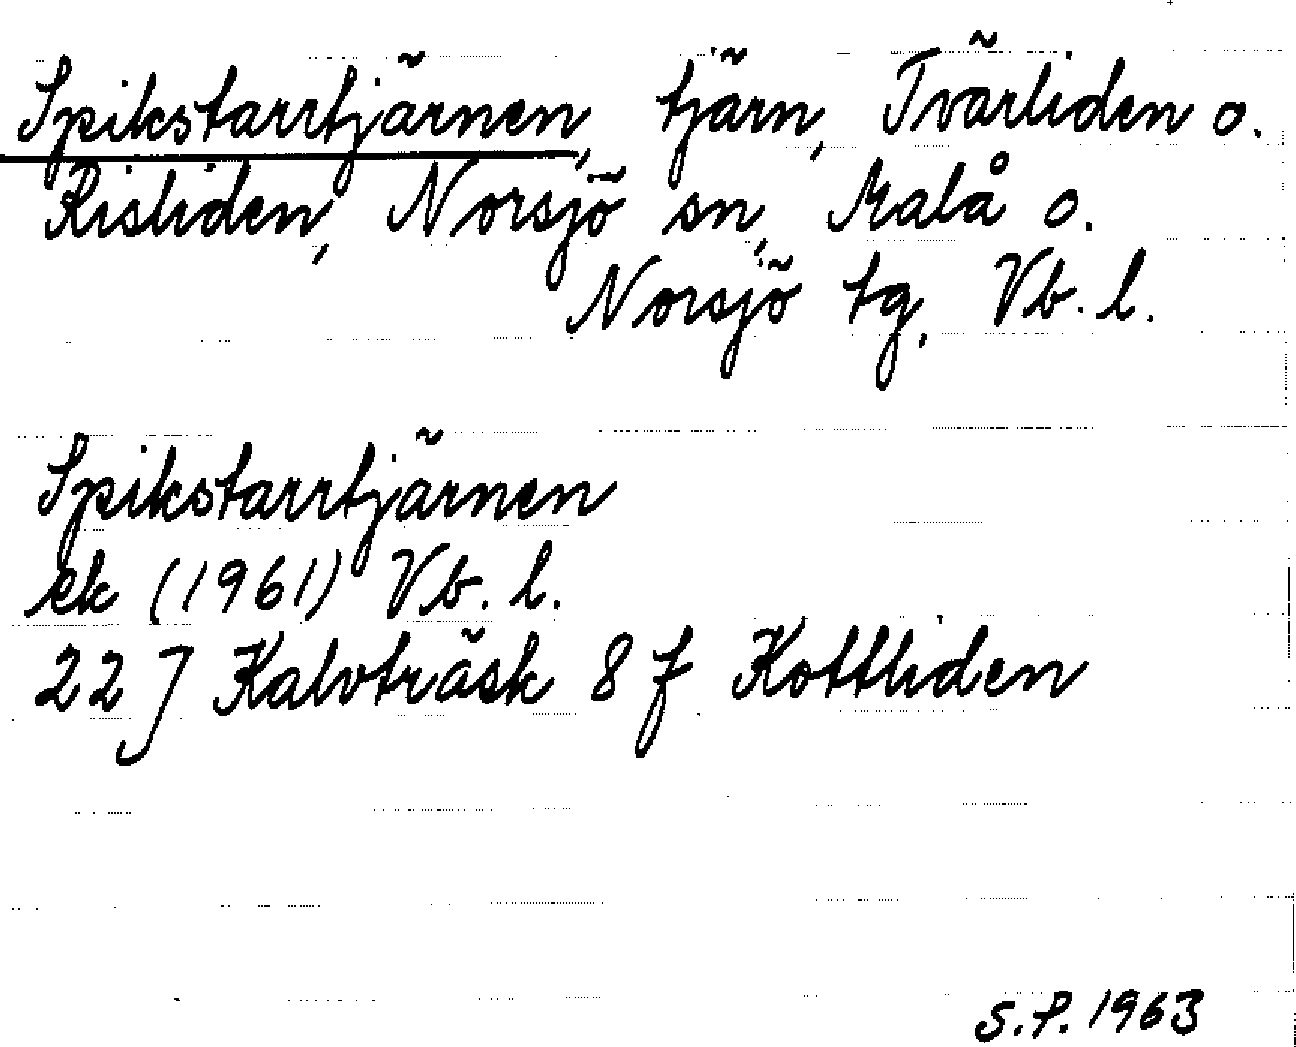 Spikstarrtjärnen, tjärn, Tvärliden o.
Risliden, Norsjö sn, Malå o.
Norsjö tg, Vb. l.
Spikstarrtjärnen
ek (1961) Vb. l.
22 J Kalvträsk 8 f Kottliden
S.P. 1963